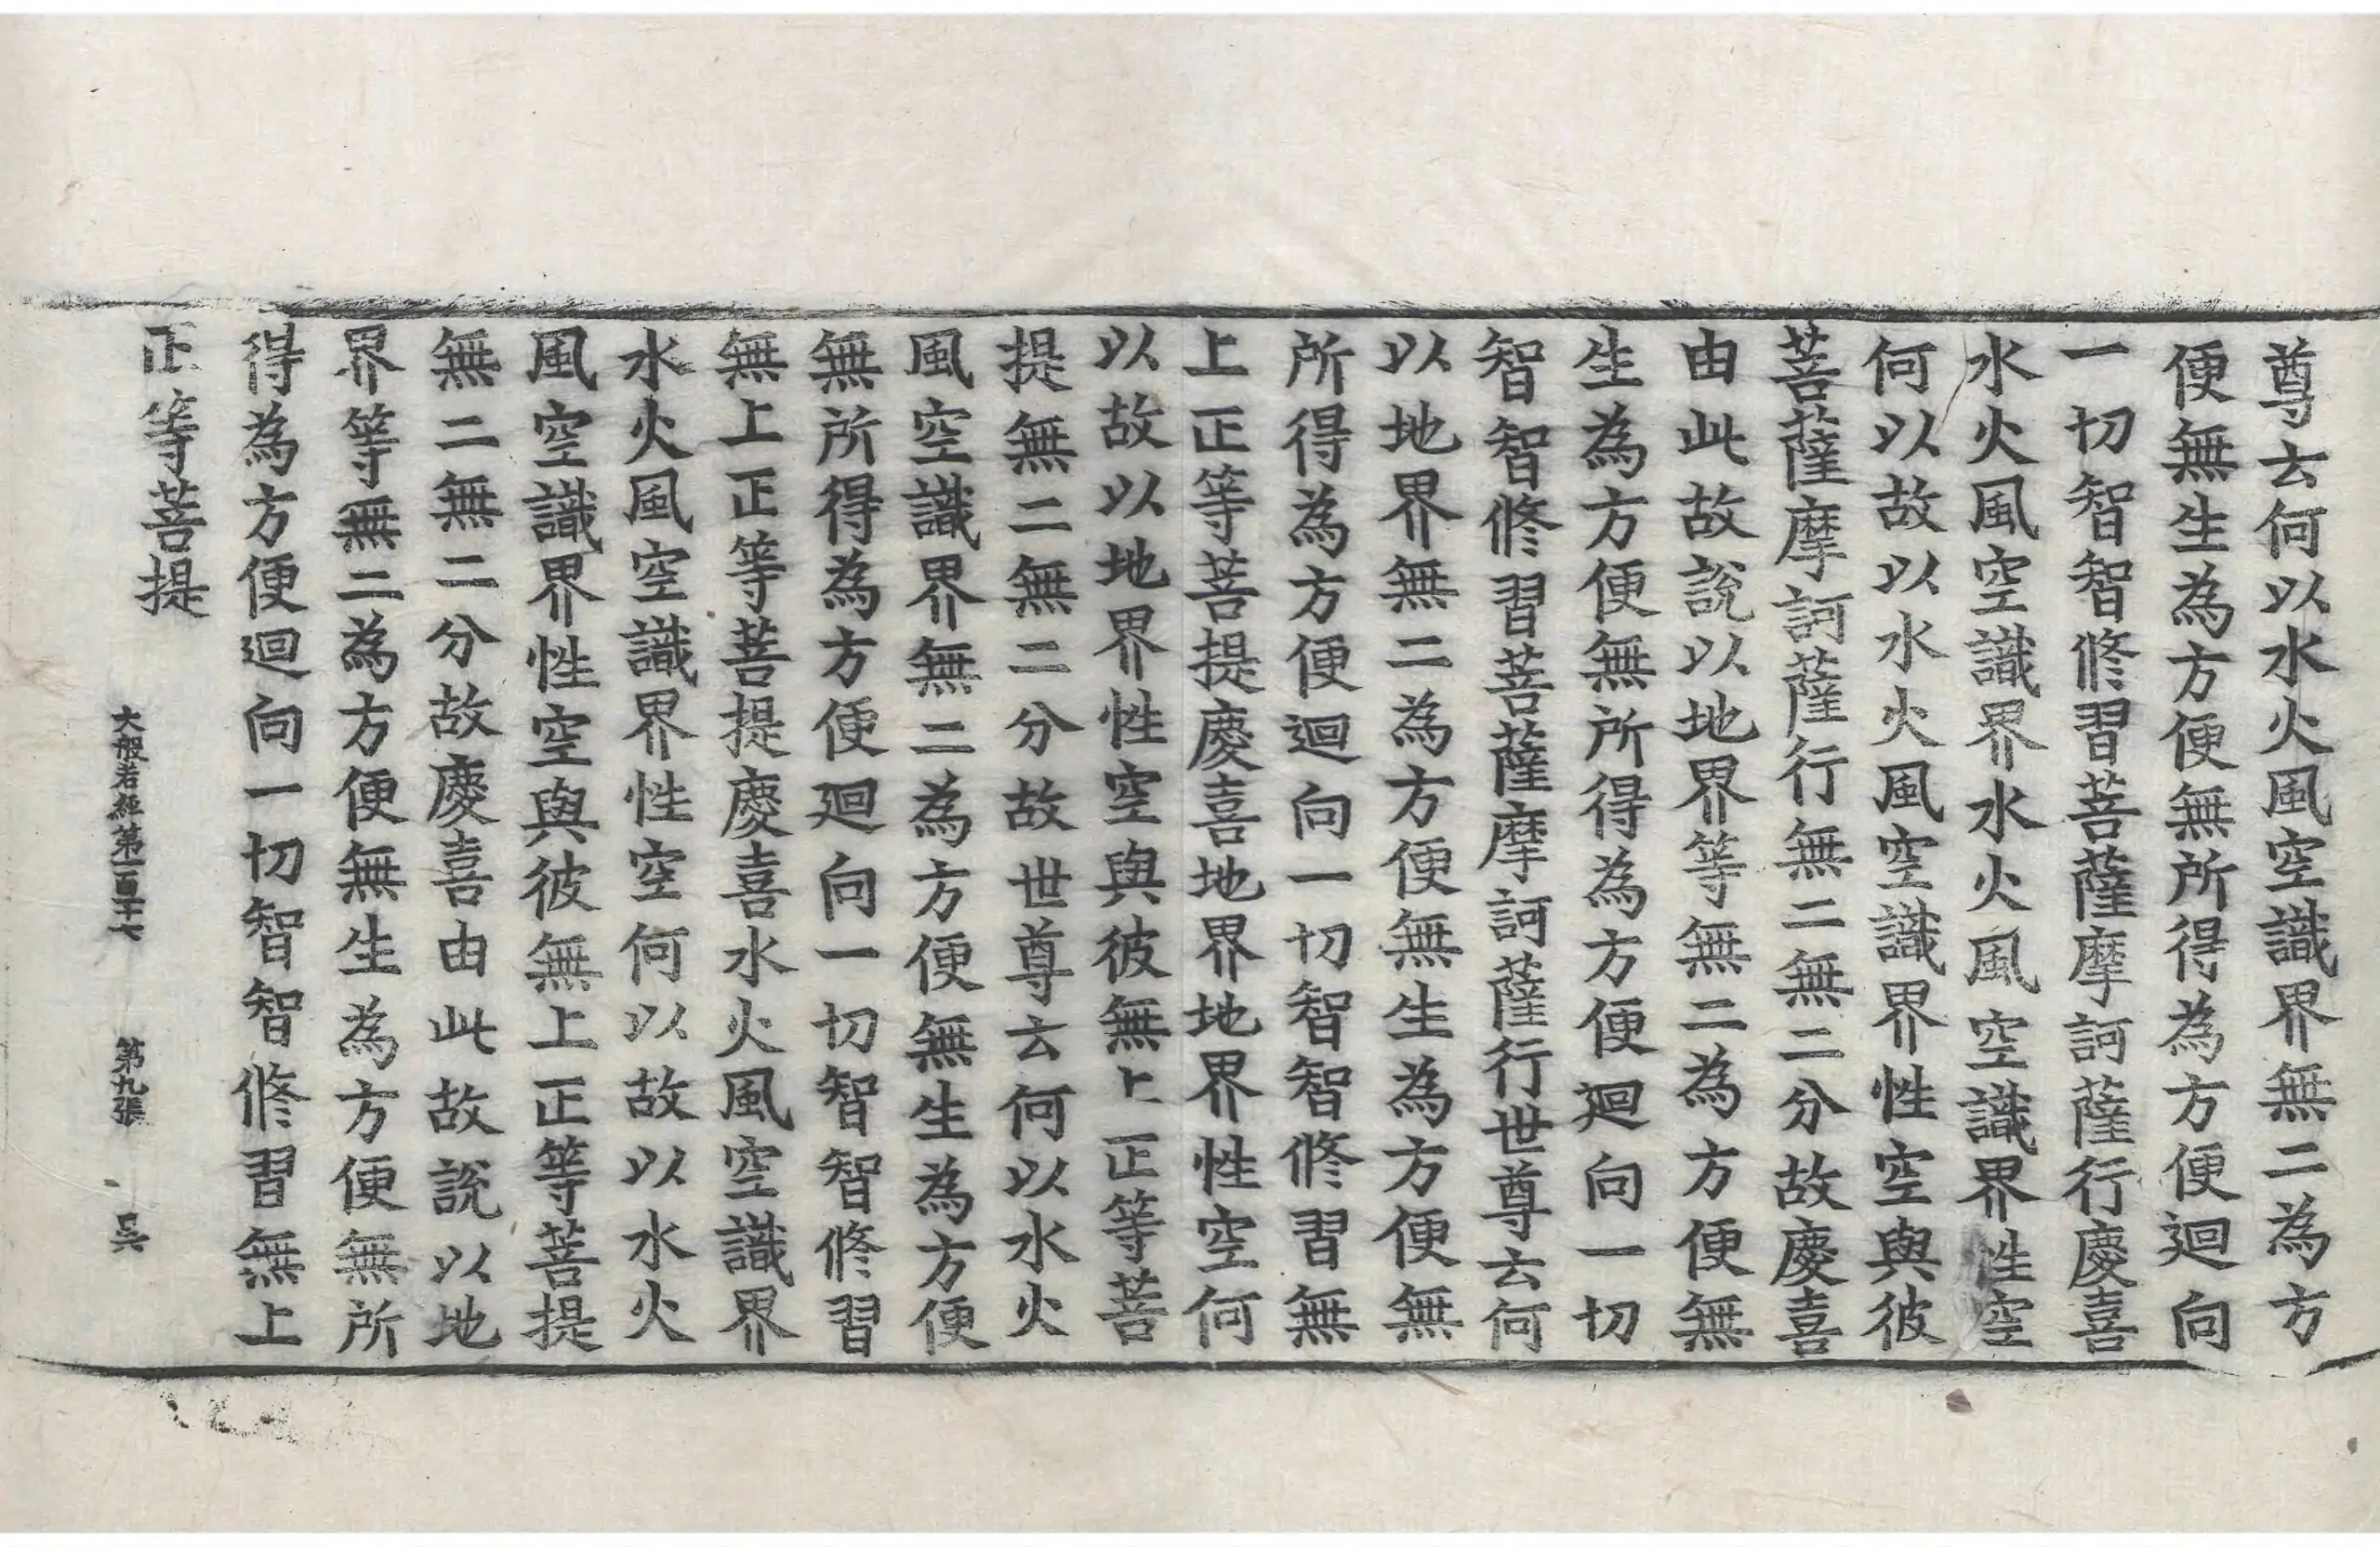 尊去何以水火風空識界無二為方
便無生為方便無所得為方便迴向
一切智智修習菩薩摩訶薩行慶喜
水火風空識界水火風空識界性空
何以故以水火風空識界性空與彼
菩薩摩訶薩行無二無二分故慶喜
由此故說以地界等無二為方便無
生為方便無所得為方便迴向一切
智智修習菩薩摩訶薩行世尊云何
以地界無二為方便無生為方便無
所得為方便迴向一切智智修習無
上正等菩提慶喜地界地界性空何
以故以地界性空與彼無上正等菩
提無二無二分故世尊云何以水火
風空識界無二為方便無生為方便
無所得為方便迴向一切智智修習
無上正等菩提慶喜水火風空識界
水火風空識界性空何以故以水火
風空識界性空與彼無上正等菩提
無二無二分故慶喜由此故說以地
界等無二為方便無生為方便無所
得為方便迴向一切智智修習無上
正等菩提
大般若經第一百十七 第九張 吳